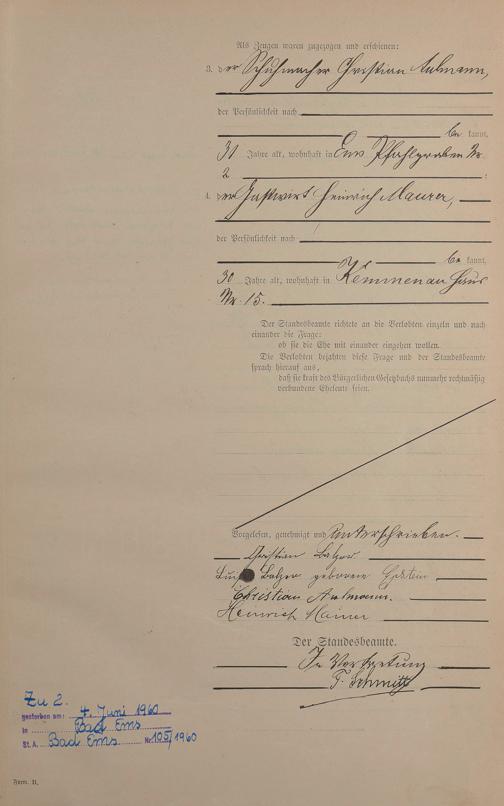 Als Zeugen waren zugezogen und erschienen:
3. der Schuhmacher Christian Aulmann,
der Persönlichkeit nach
be kannt,
31 Jahre alt, wohnhaft in Ems Pfahlgraben Nr.
2
4. der Gastwirt Heinrich Maurer,
der Persönlichkeit nach
be kannt,
30 Jahre alt, wohnhaft in Kemmenau Haus
Nr. 15.
Der Standesbeamte richtete an die Verlobten einzeln und nach
einander die Frage:
ob sie die Ehe mit einander eingehen wollen.
Die Verlobten bejahten diese Frage und der Standesbeamte
sprach hierauf aus,
daß sie kraft des Bürgerlichen Gesetzbuchs nunmehr rechtmäßig
verbundene Eheleute seien.
Vorgelesen, genehmigt und unterschrieben.
Christian Balzer
Balzer geborene
Christian Aulmann.
Heinrich Maurer
Der Standesbeamte.
In Vertretung
F. Schmitz
Zu 2.
gestorben am: 4. Juni 1960
in Bad Ems
St. A. Bad Ems Nr. 105/1960
Form. B.